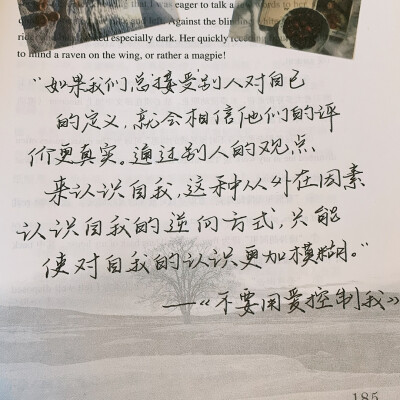 that I was eager to talk a few words to her
Against the blinding white
looked especially dark. Her quickly
to mind a raven on the wing, or rather a magpie!
“如果我们总接受别人对自己
的定义,就会相信他们的评
价更真实。通过别人的观点
来认识自我,这种从外在因素
认识自我的逆向方式,只能
使对自我的认识更加模糊。”
——《不要用爱控制我》
185